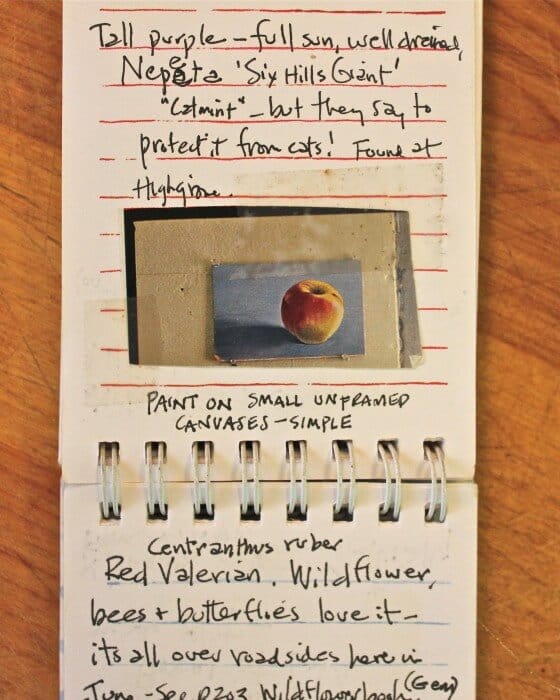 Tall purple - full sun, well drained,
Nepeta 'Six Hills Giant'
"Catmint" - but they say to
protect it from cats! Found at
Highgrove.
PAINT ON SMALL UNFRAMED
CANVASES - SIMPLE
Centranthus ruber
Red Valerian. Wildflower,
bees + butterflies love it -
its all over roadsides here in
June - See p203 Wildflower book (Gem)